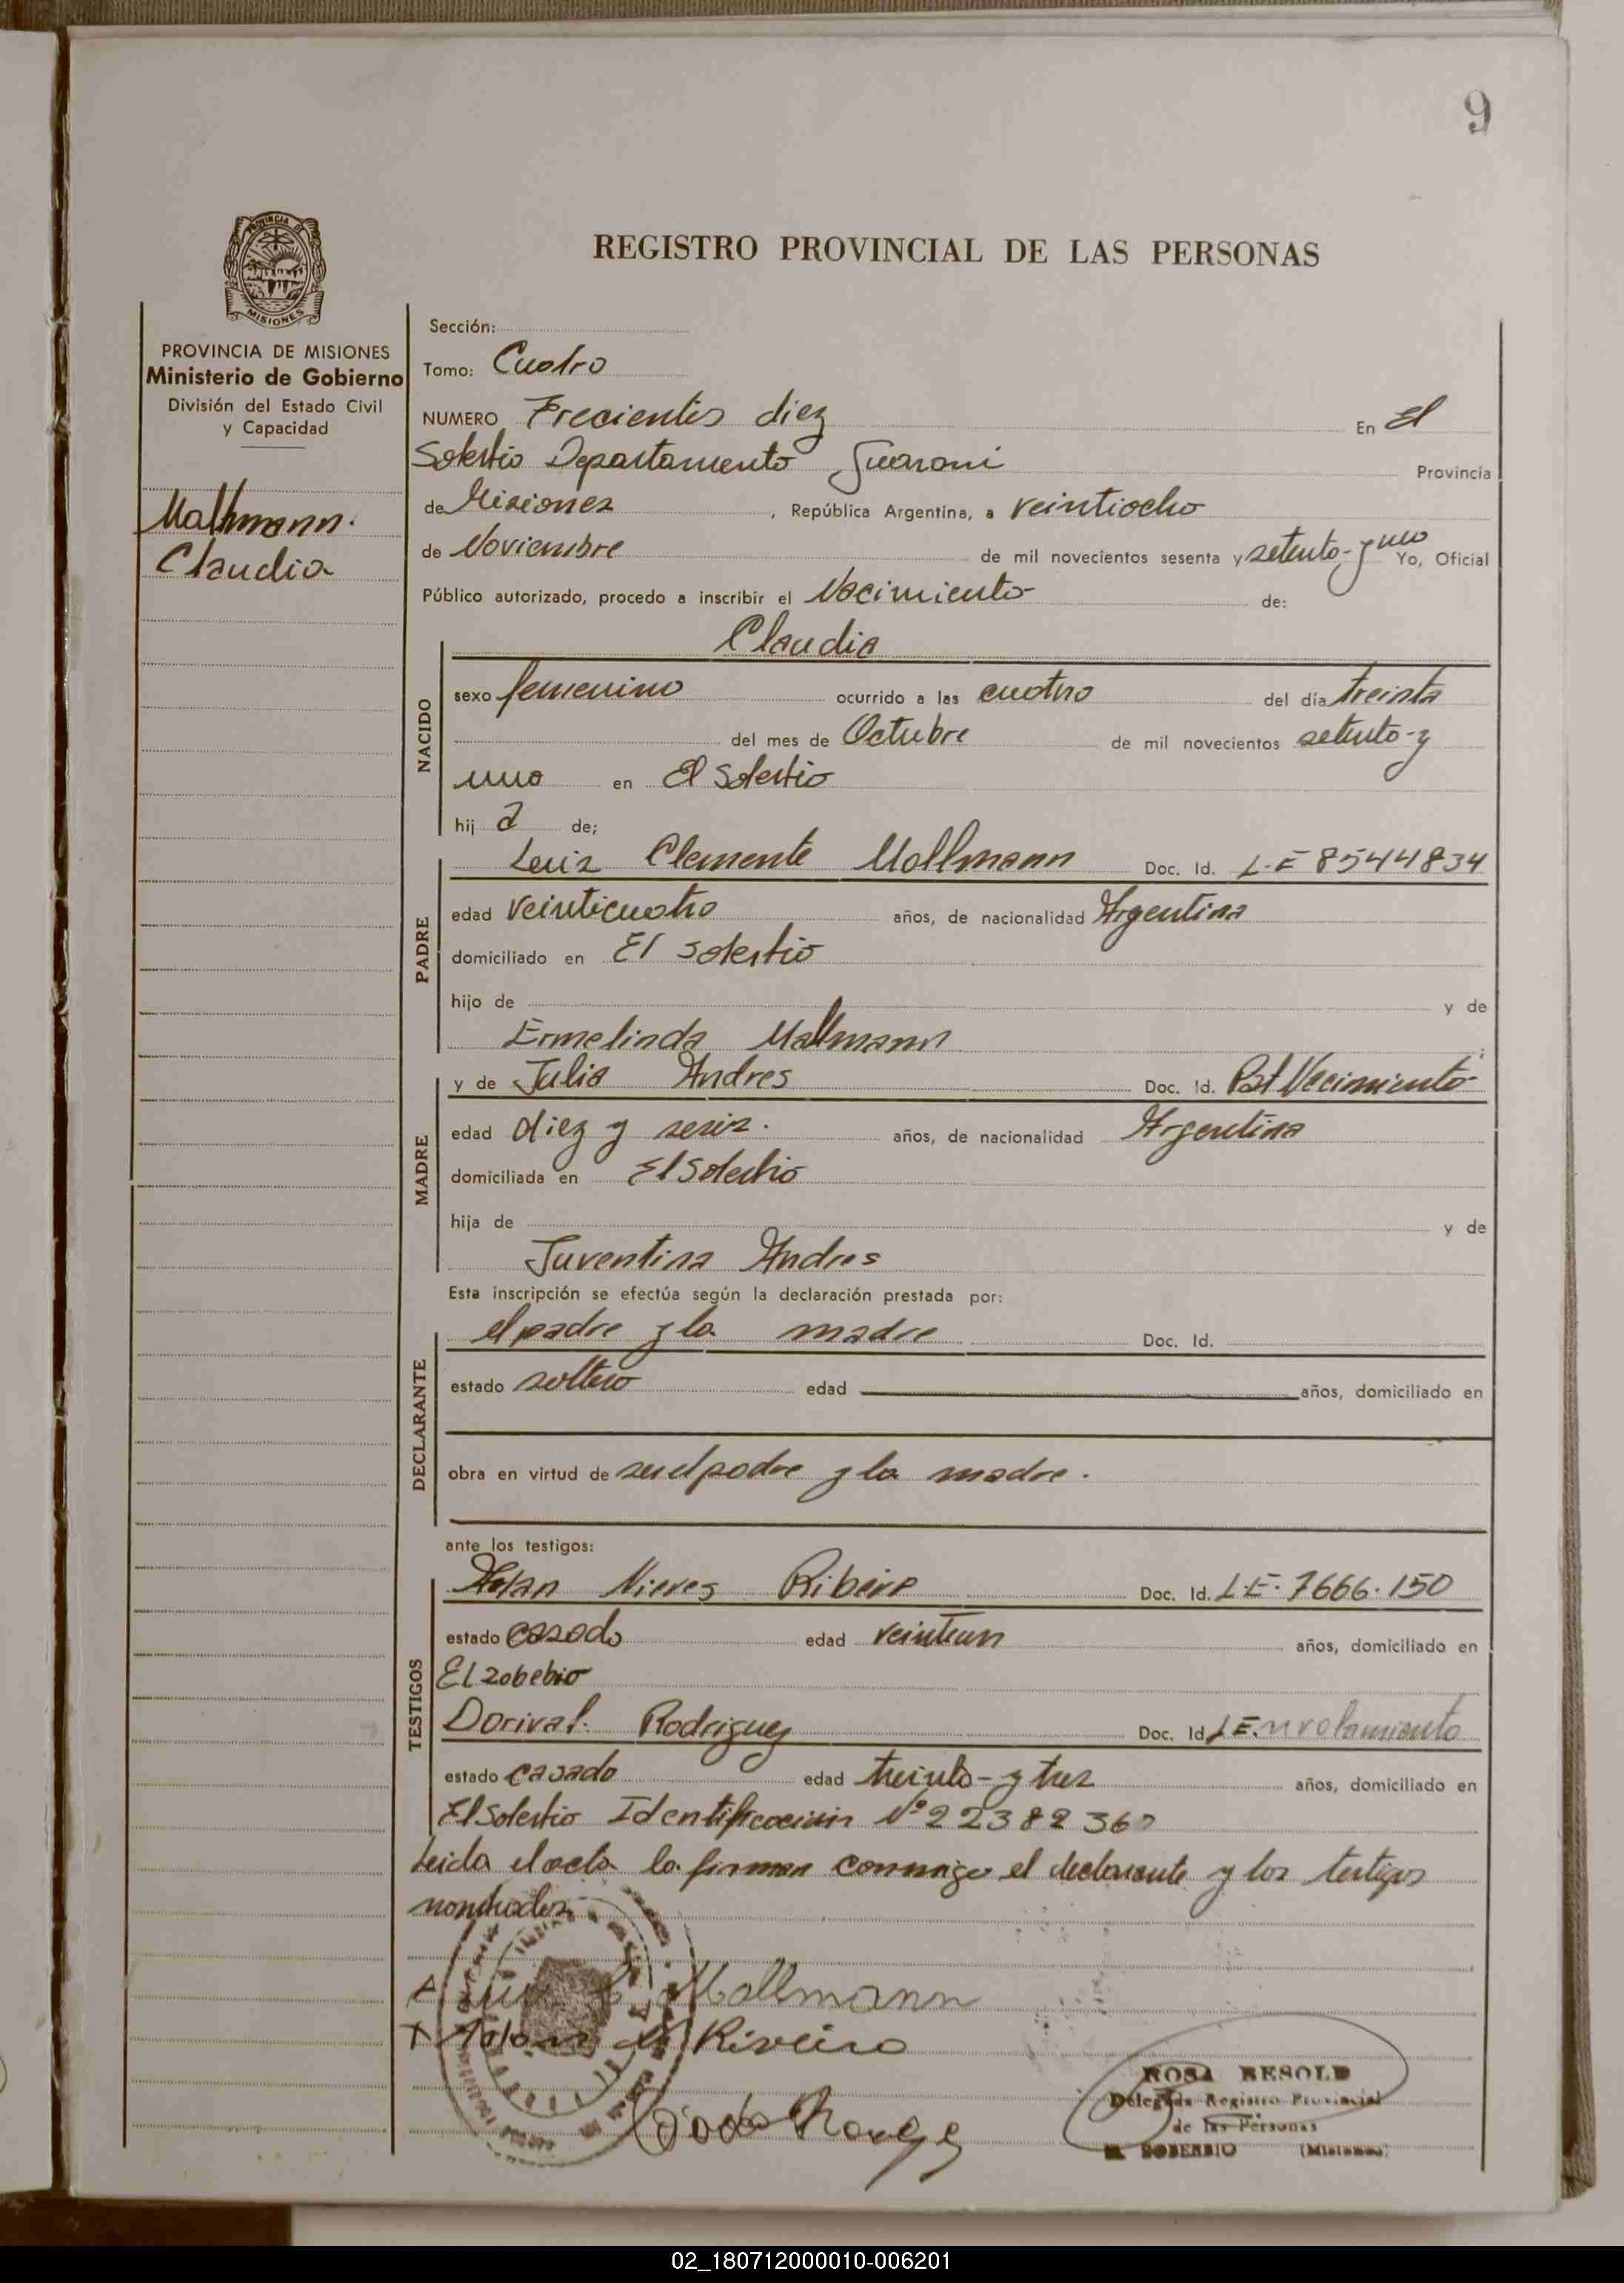 9
PROVINCIA DE
MISIONES
REGISTRO PROVINCIAL DE LAS PERSONAS
PROVINCIA DE MISIONES
Ministerio de Gobierno
División del Estado Civil
y Capacidad
Mallmann.
Claudia
Sección:
Tomo: Cuatro
NUMERO Trecientos diez En El
Soberbio Departamento Guarani Provincia
de Misiones, República Argentina, a veintiocho
de Noviembre de mil novecientos sesenta y setenta-y uno Yo, Oficial
Público autorizado, procedo a inscribir el Nacimiento de:
Claudia
NACIDO
sexo femenino ocurrido a las cuatro del día treinta
del mes de Octubre de mil novecientos setenta-y
uno en El Soberbio
hij a de;
PADRE
Luis Clemente Mallmann Doc. Id. L.E 8544834
edad veinticuatro años, de nacionalidad Argentina
domiciliado en El Soberbio
hijo de y de
Ermelinda Mallmann
MADRE
y de Julia Andres Doc. Id. Nacimiento
edad diez y seis. años, de nacionalidad Argentina
domiciliada en El Soberbio
hija de y de
Juventina Andres
Esta inscripción se efectúa según la declaración prestada por:
DECLARANTE
el padre y la madre Doc. Id.
estado soltero edad años, domiciliado en
obra en virtud de ser el padre y la madre.
ante los testigos:
TESTIGOS
Nieves Ribeiro Doc. Id. L.E. 7666.150
estado casado edad veintiun años, domiciliado en
El zobebio
Dorival. Rodriguez Doc. Id L E. nrolamiento
estado casado edad treinta-y tres años, domiciliado en
El Soberbio Identificacion Nº 2238236
Leida el acta la firman conmigo el declarante y los testigos
nombrados
Mallmann
Riveiro
ROSA RESOLD
Delegada Registro Provincial
de las Personas
EL SOBERBIO (Misiones)
02_180712000010-006201